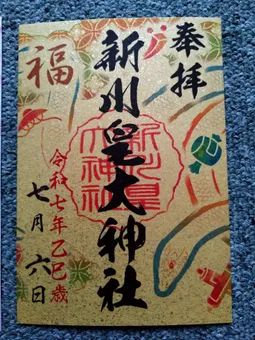 奉拝
新川皇大神社
新川皇大神社
福
令和七年乙巳歳
七月六日